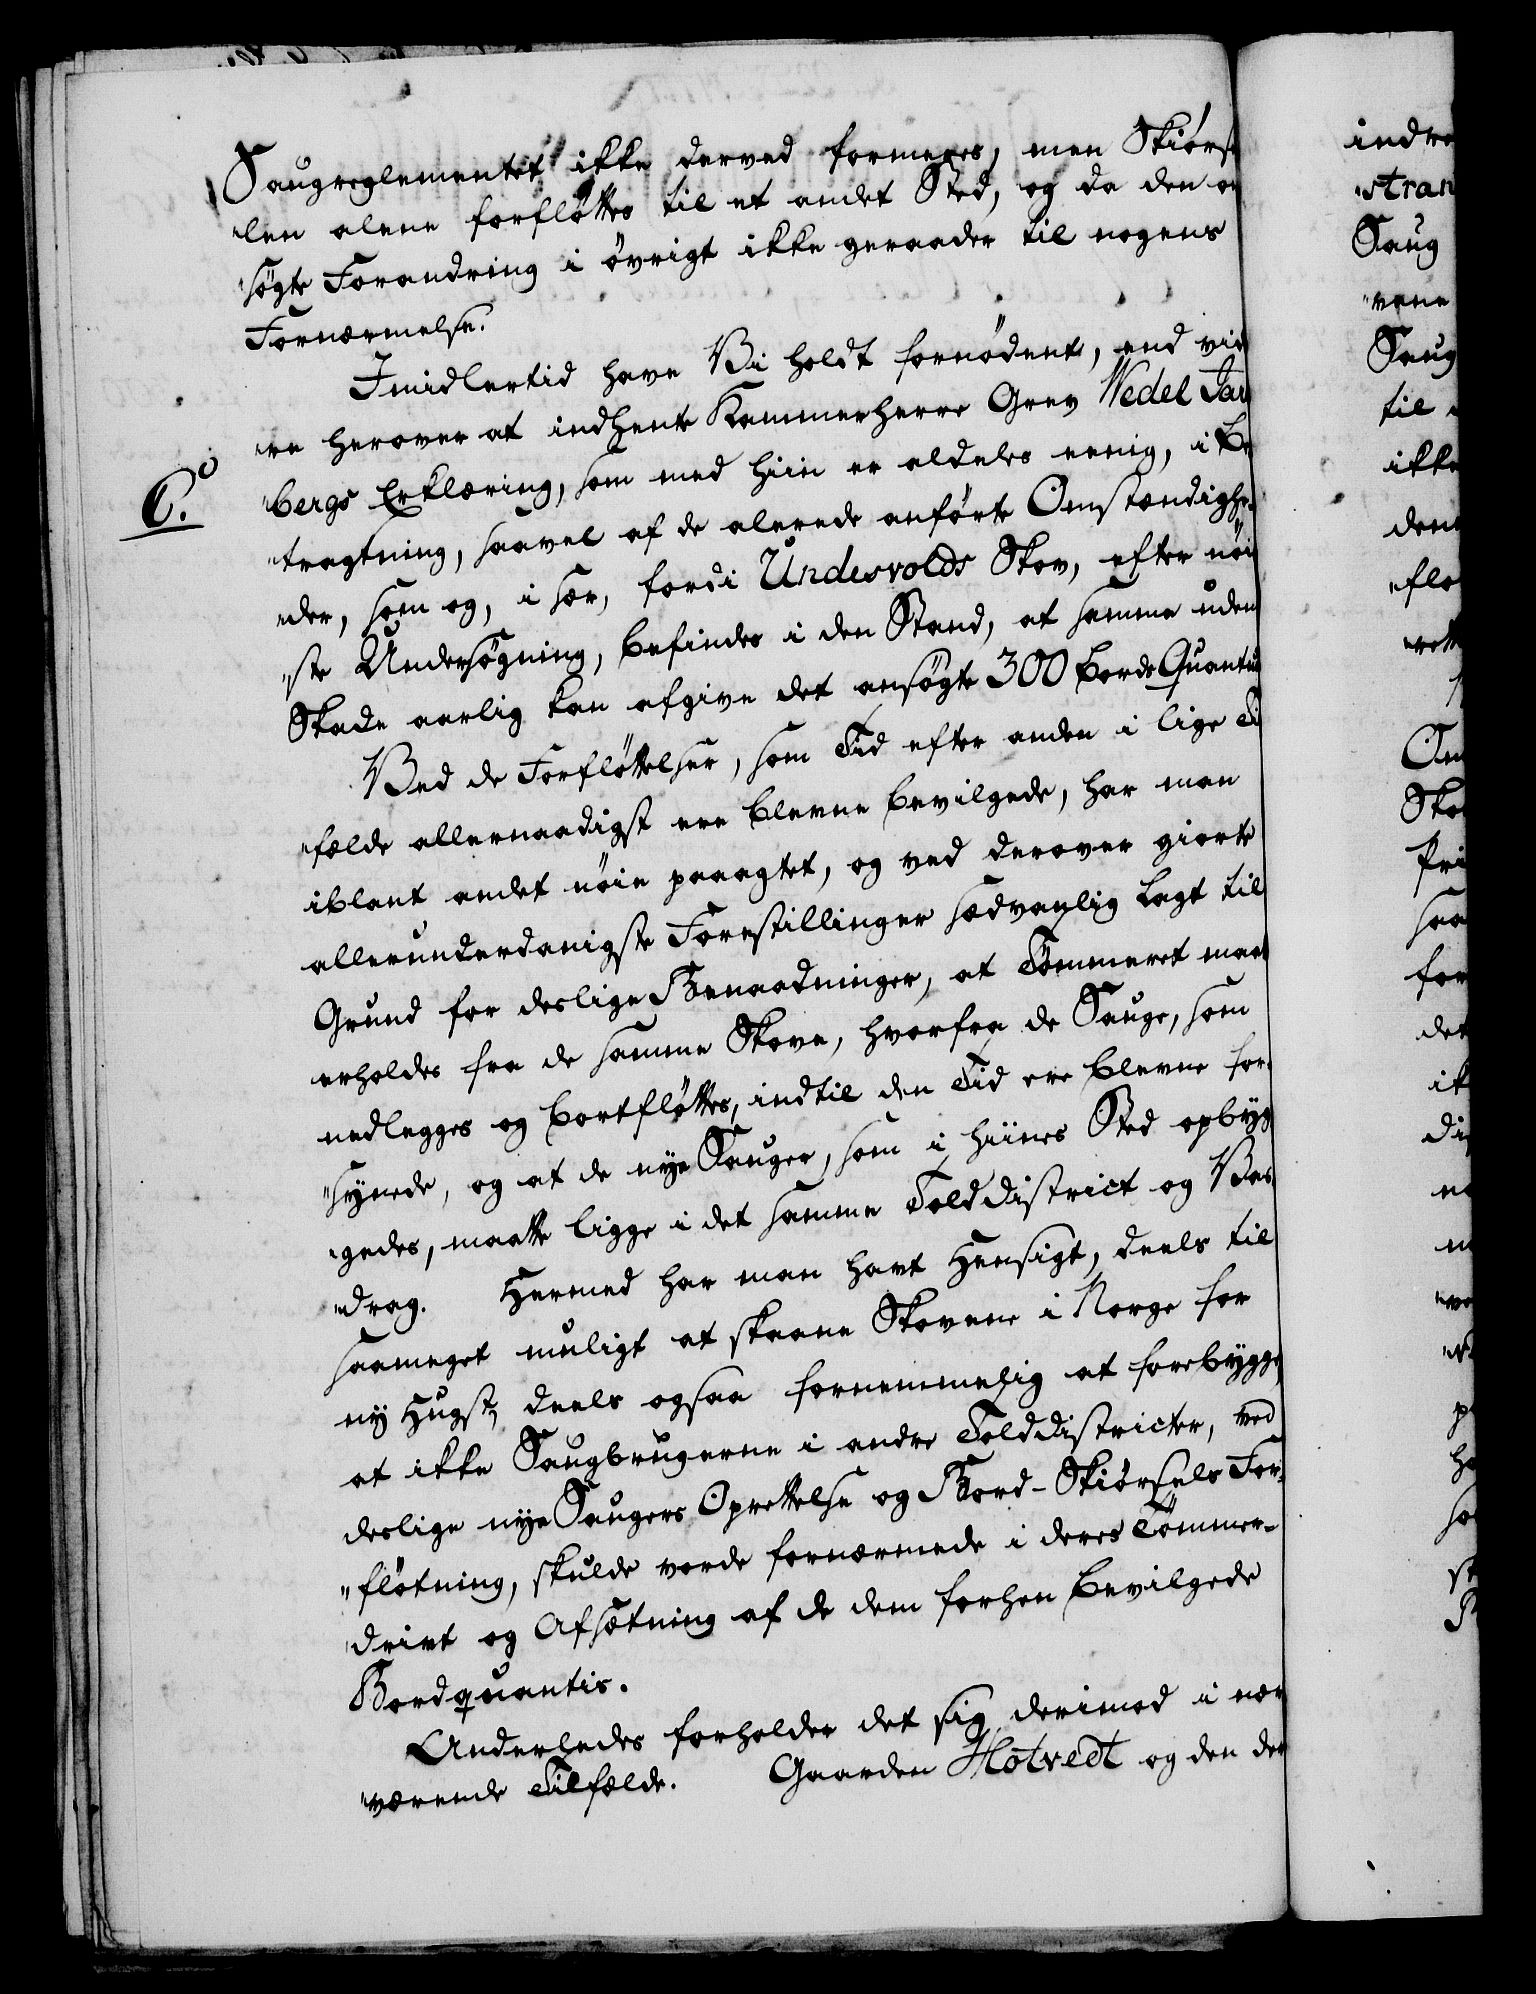 Saugreglementet ikke derved formeres, men Skiørse
len alene forfløttes til et andet Sted, og da den an
søgte Forandring i øvrigt ikke geraader til nogens
Fornærmelse.
Imidlertid have Vi holdt fornødent, end vid
re herover at indhente Kammerherre Grev Wedel Jarls
C.
bergs Erklæring, som med hiin er aldeles eenig, i Be
tragtning, saavel af de alerede anførte Omstændighe-
der, som og, i sær, fordi Undesvolds Skov, efter nøi
ste Undersøgning, befindes i den Stand, at samme uden
Skade aarlig kan afgive det ansøgte 300 Borde Quantum
Ved de Forfløttelser, som Tid efter anden i lige Til
fælde allernaadigst ere blevne bevilgede, har man
iblant andet nøie paaagtet, og ved derover giorte
allerunderdanigste Forestillinger sædvanlig lagt til
Grund for deslige Benaadninger, at Tømmeret maat
erholdes fra de samme Skove, hvorfra de Sauge, som
nedlegges og bortfløttes, indtil den Tid ere blevne for-
synede, og at de nye Sauger, som i hiines Sted opbyg
gedes, maatte ligge i det samme Tolddistrict og Vas
drag. Hermed har man havt Hensigt, deels til
saameget muligt at skaane Skovene i Norge for
ny Hugst, deels ogsaa fornemmelig at forebygge
at ikke Saugbrugerne i andre Tolddistricter, ved
deslige nye Saugers Oprettelse og Bord-Skiørsels For-
fløtning, skulde vorde fornærmede i deres Tømmer-
drivt og Afsætning af de dem forhen bevilgede
Bordquantis.
Anderledes forholder det sig derimod i nær
værende Tilfælde. Gaarden Hotvedt og den der
indre
stran
Saug
vene
Saug
til
ikke
den
flø
Om
Sko
Pri
saa
for
det
ik